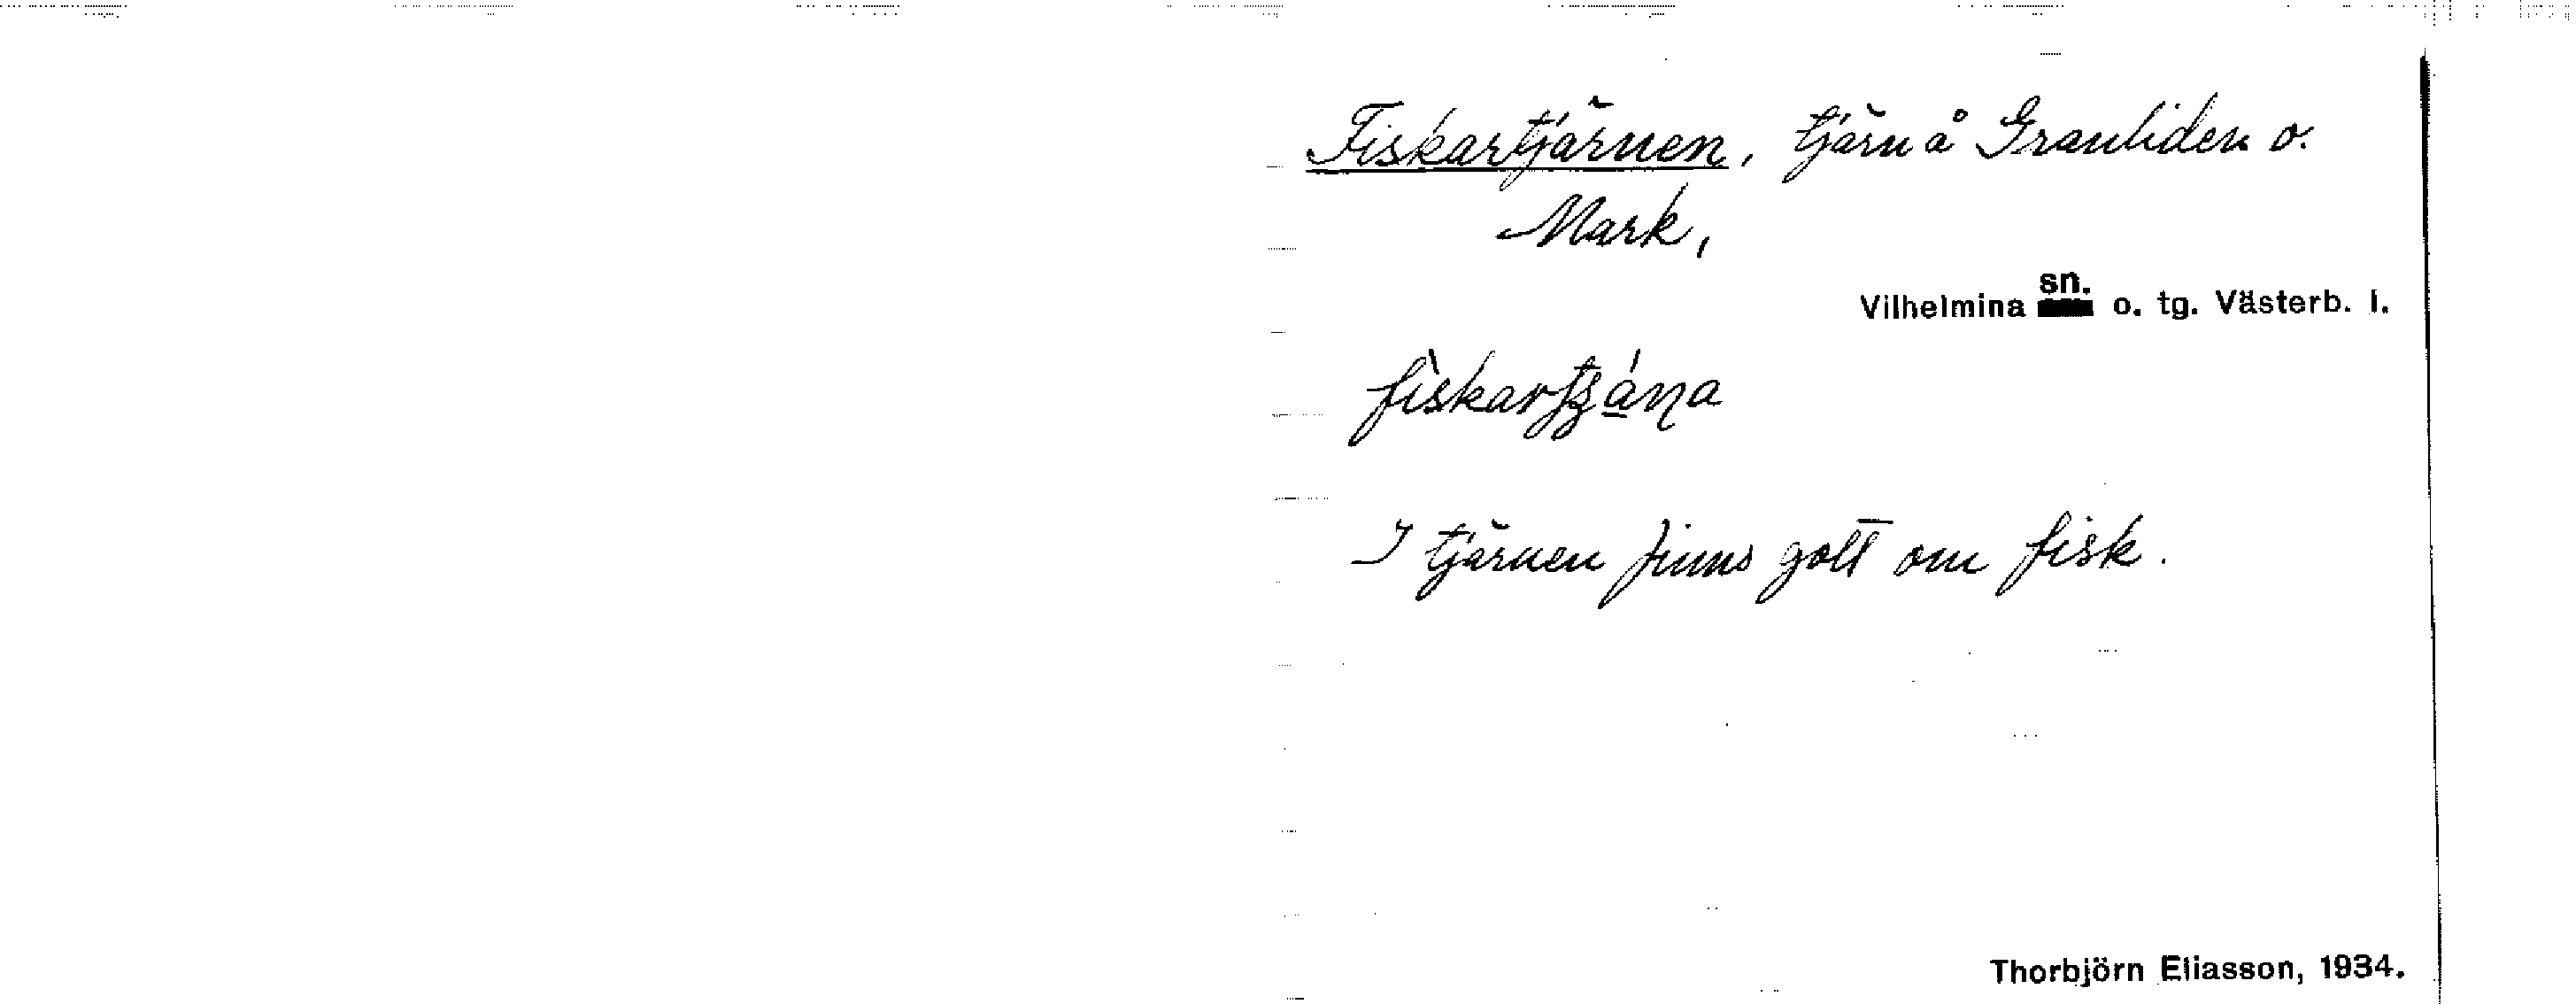 Fiskartjärnen, tjärn å Granliden o.
Mark,
Vilhelmina sn. o. tg. Västerb. l.
I tjärnen finns gott om fisk.
Thorbjörn Eliasson, 1934.